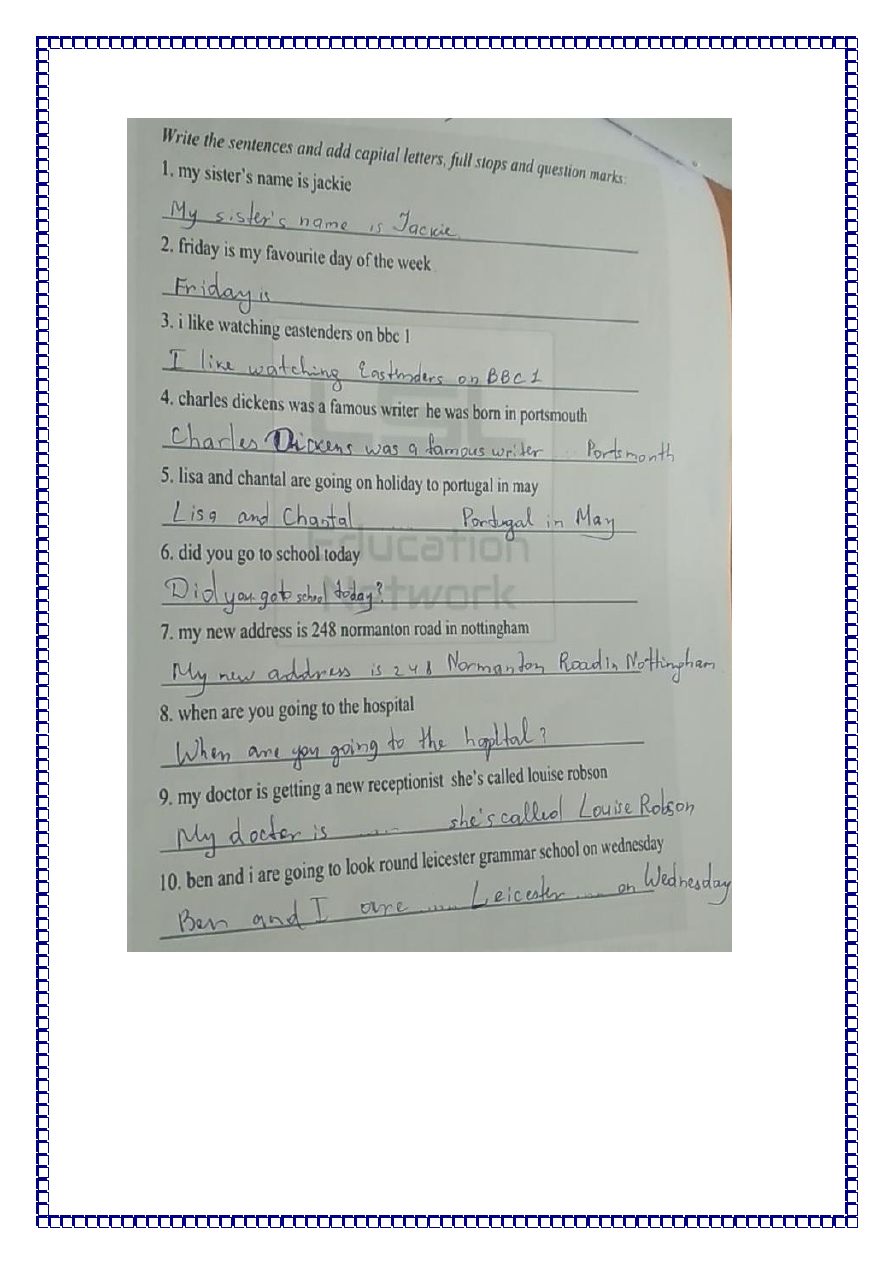 Write the sentences and add capital letters, full stops and question marks:
1. my sister's name is jackie
My sister's name is Jackie.
2. friday is my favourite day of the week
Friday is
3. i like watching eastenders on bbc 1
I like watching Eastenders on BBC 1
4. charles dickens was a famous writer he was born in portsmouth
Charles Dickens was a famous writer ... Portsmonth
5. lisa and chantal are going on holiday to portugal in may
Lisa and Chantal .... Portugal in May
6. did you go to school today
Did you go to school today?
7. my new address is 248 normanton road in nottingham
My new address is 248 Normanton Road in Nottingham
8. when are you going to the hospital
When are you going to the hopltal?
9. my doctor is getting a new receptionist she's called louise robson
My doctor is ........ she's called Louise Robson
10. ben and i are going to look round leicester grammar school on wednesday
Ben and I are ..... Leicester ..... on Wednesday
ESL
Education
Network